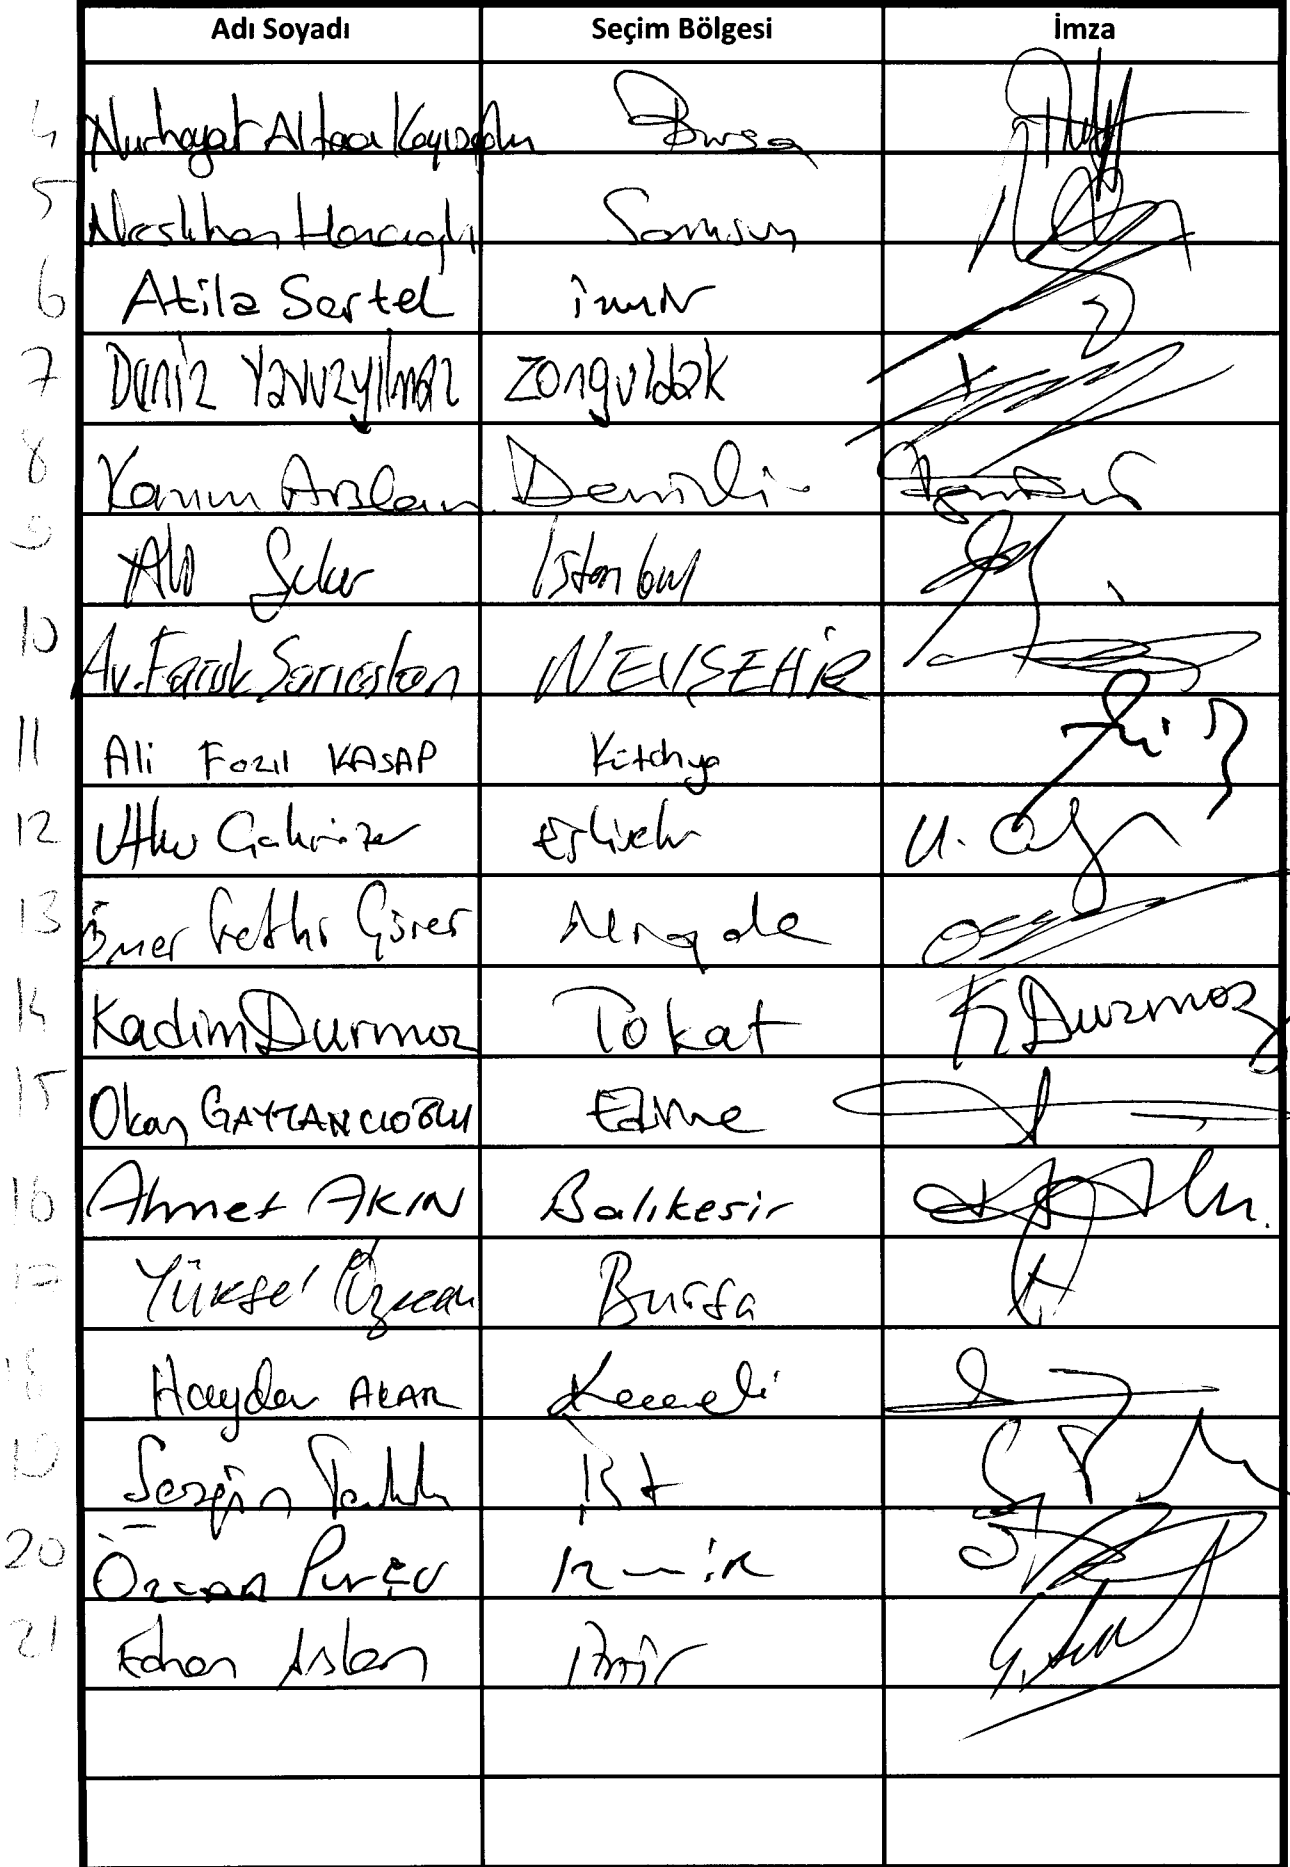 Adı Soyadı Seçim Bölgesi İmza
4 Nurhayat Altaca Kayışoğlu Bursa
5 Neslihan Hancıoğlu Samsun
6 Atila Sertel İzmir
7 Deniz Yavuzyılmaz Zonguldak
8 Kazım Arslan Denizli
9 Ali Şeker İstanbul
10 Av. Faruk Sarıaslan NEVŞEHİR
11 Ali Fazıl KASAP Kütahya
12 Utku Çakırözer Eskişehir U. Ç
13 Ömer Fethi Gürer Niğde
14 Kadim Durmaz Tokat K Durmaz
15 Okan GAYTANCIOĞLU Edirne
16 Ahmet AKIN Balıkesir
17 Yüksel Özkan Bursa
18 Haydar AKAR Kocaeli
19 Sezgin Tanrıkulu İst
20 Özcan Purçu İzmir
21 Ednan Aslan İzmir